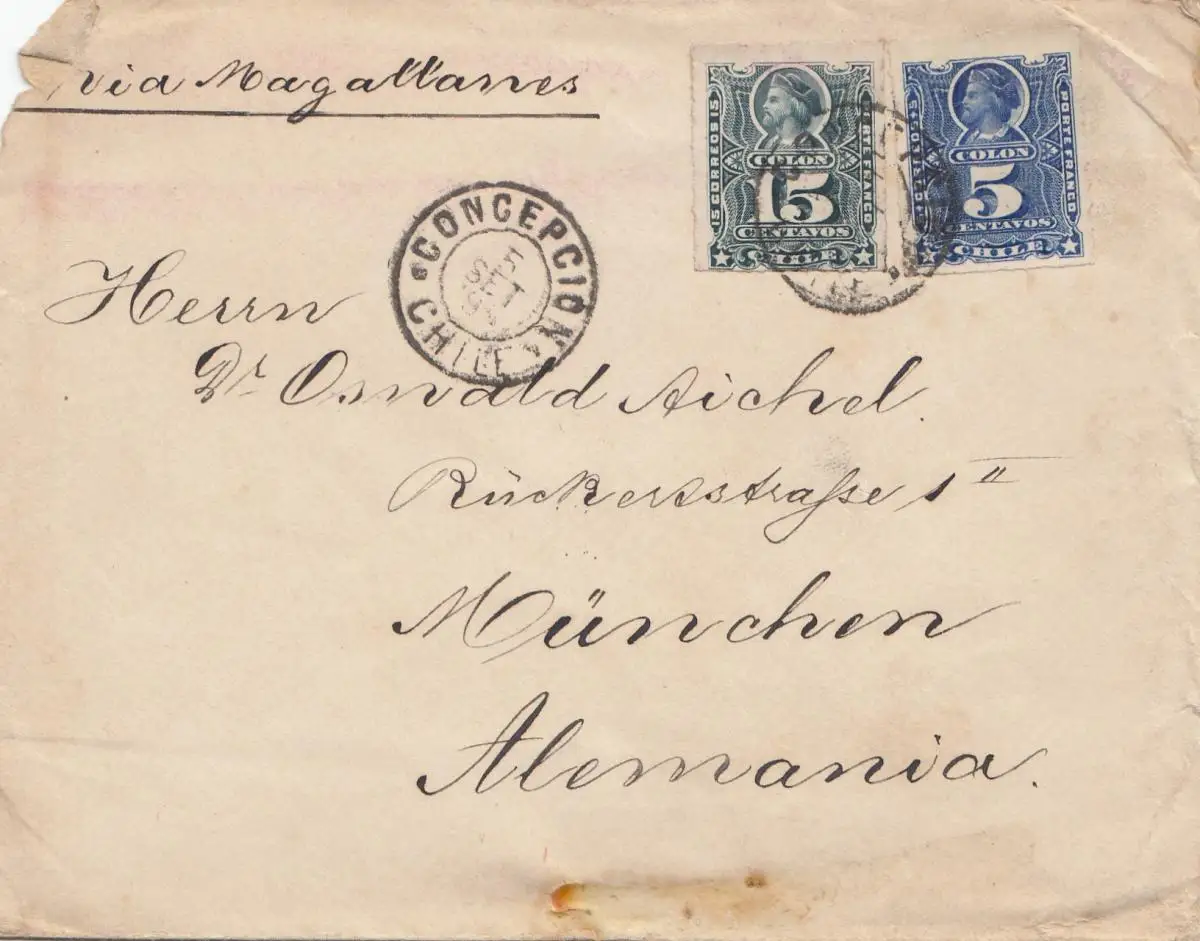 via Magallanes
15 CORREOS 15
PORTE FRANCO
COLON
15
CENTAVOS
CHILE
5 CORREOS 5
PORTE FRANCO
COLON
5
CENTAVOS
CHILE
CONCEPCION
5
SET
CHILE
Herrn
Dr. Oswald Aichel.
Rückertstraße 1 II
München
Alemania.